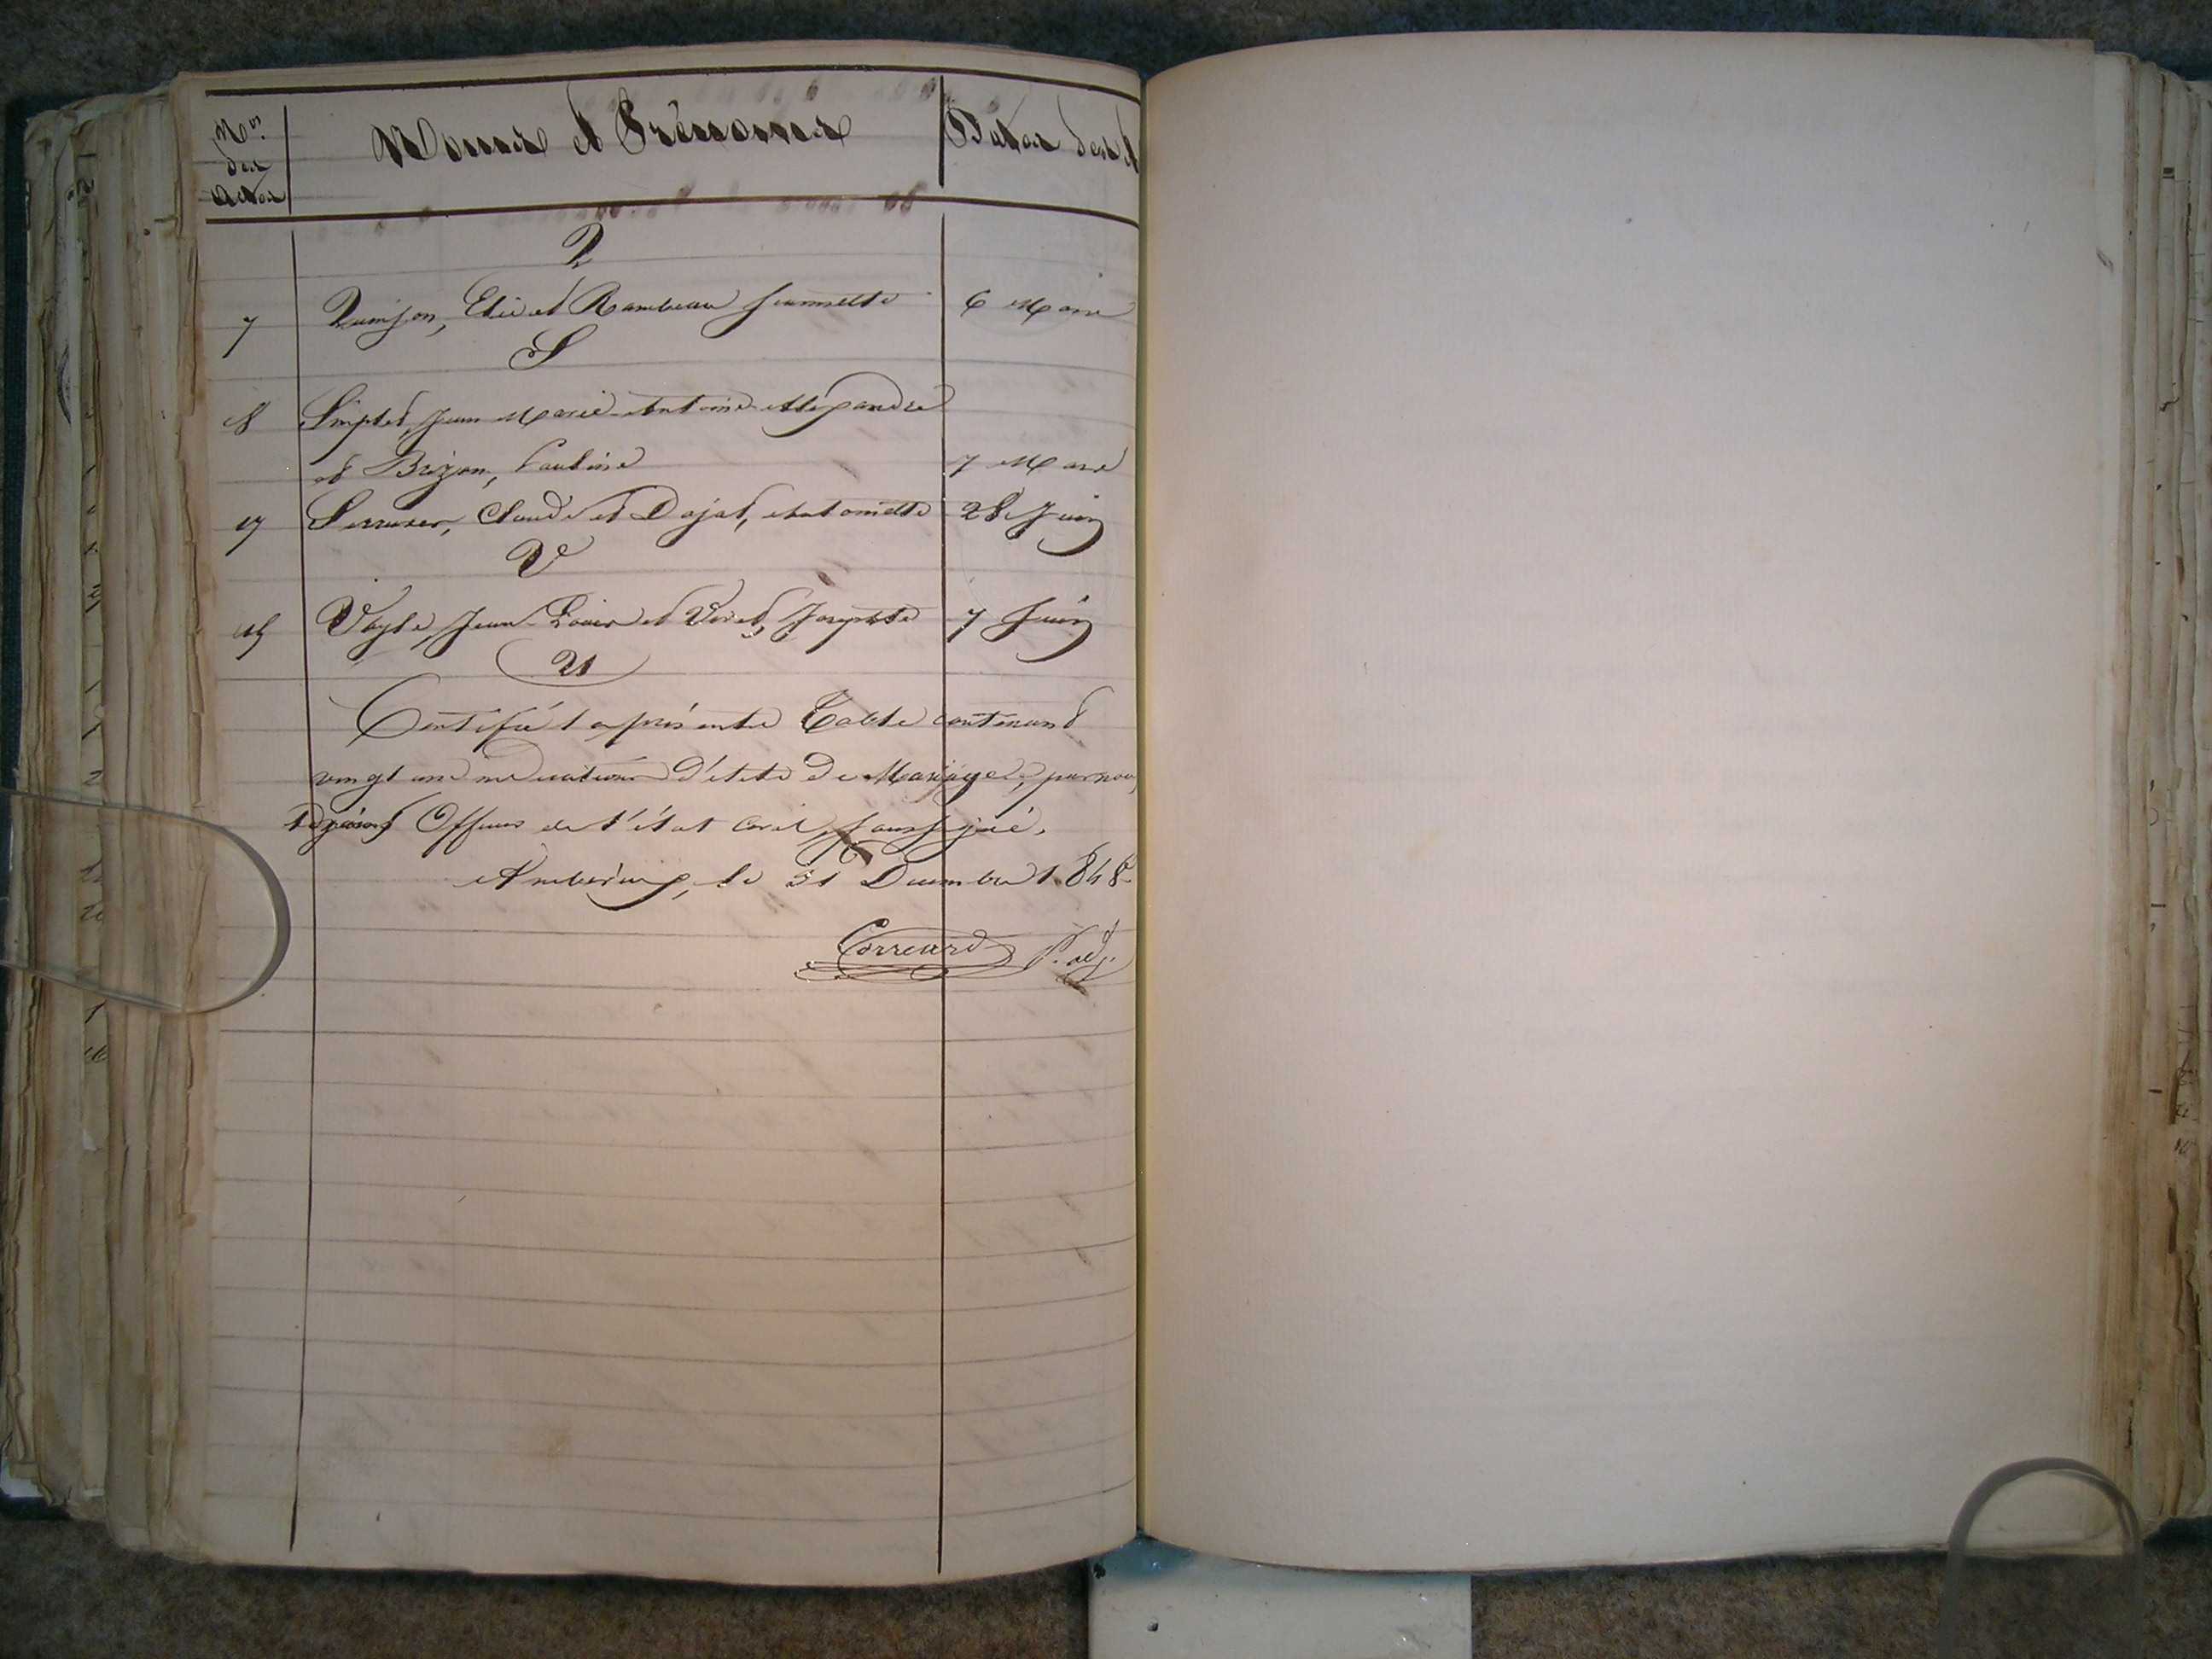 Nos des actes
Noms et Prénoms
Dates des A
Q
7 Quinson, Elie et Rambeau Jeannette 6 Mars
S
8 Simplet, Jean Marie Antoine Alexandre
et Brizon, Pauline 7 Mars
17 Serrurer, Claude et Dajat, Antoinette 28 Juin
V
15 Vayle, Jean Louis et Viret, Josephte 7 Juin
21
Certifié la présente Table contenant
vingt une indications d'Acte de Mariages, par nous
Officier de l'état Civil, soussigné.
Ambérieux, le 31 Decembre 1848.
Correard